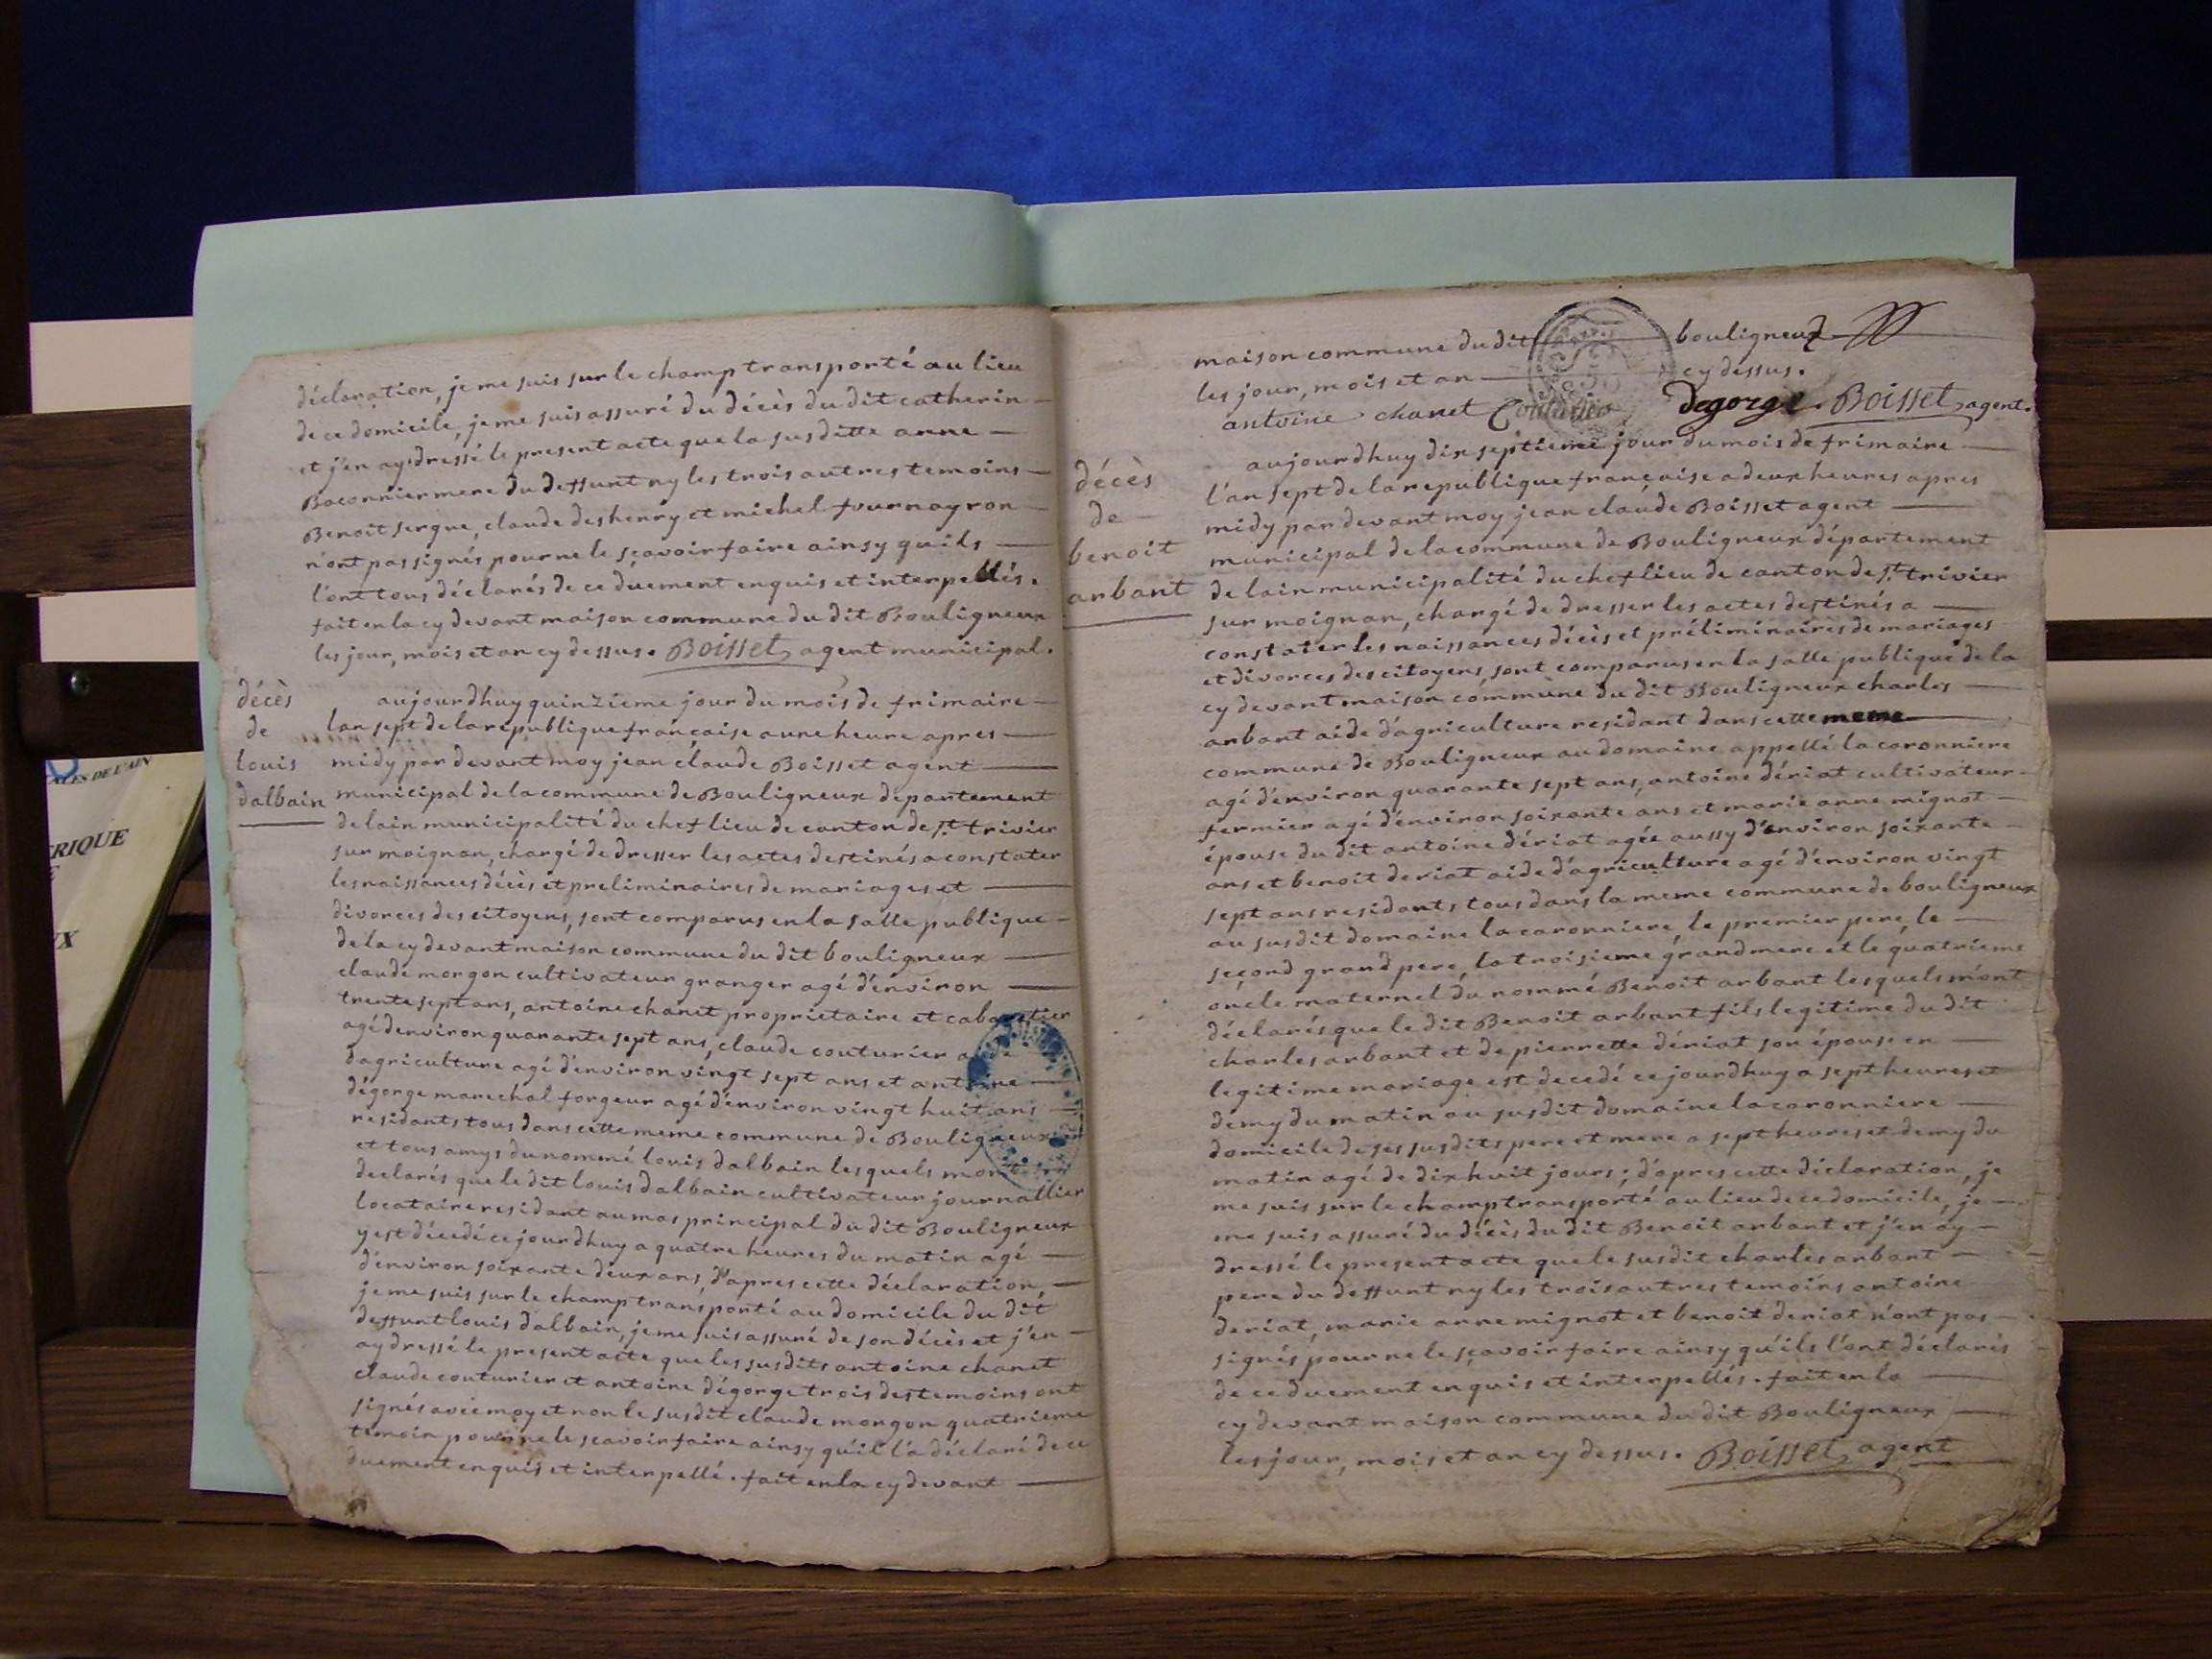 déclaration, je me suis sur le champ transporté au lieu
de ce domicile, je me suis assuré du décès du dit catherin
et j'en ay dressé le present acte que la sus ditte anne
Baconnier mere du deffunt ny les trois autres temoins
Benoit sergue, claude deshenry et michel fournayron
n'ont pas signés pour ne le sçavoir faire ainsy quils
l'ont tous déclarés de ce duement enquis et interpellés.
fait en la cy devant maison commune du dit Bouligneux
les jour, mois et an cy dessus. Boisset agent municipal.
décès
de
louis
dalbain
aujourdhuy quinzieme jour du mois de frimaire
lan sept de la republique française a une heure apres
midy par devant moy jean claude Boisset agent
municipal de la commune de Bouligneux departement
de lain municipalité du chef lieu de canton de st. trivier
sur moignan, chargé de dresser les actes destinés a constater
les naissances décès et preliminaires de mariages et
divorces des citoyens, sont comparus en la salle publique
de la cy devant maison commune du dit bouligneux
claude morgon cultivateur granger agé d'environ
trente sept ans, antoine chanet proprietaire et cabaretier
agé denviron quarante sept ans, claude couturier aide
dagriculture agé d'environ vingt sept ans et antoine
dégorge marechal forgeur agé d'environ vingt huit ans
residants tous dans cette meme commune de Bouligneux
et tous amys du nommé louis dalbain les quels mont
declarés que le dit louis dalbain cultivateur journallier
locataire residant au mas principal du dit Bouligneux
y est décedé ce jourdhuy a quatre heures du matin agé
d'environ soixante deux ans, d'apres cette déclaration,
je me suis sur le champ transporté au domicile du dit
deffunt louis dalbain, je me suis assuré de son décès et j'en
ay dressé le present acte que les susdits antoine chanet
claude couturier et antoine dégorge trois des temoins ont
signés avec moy et non le susdit claude morgon quatrieme
temoin pour ne le sçavoir faire ainsy qu'il l'a déclaré de ce
duement enquis et interpellé. fait en la cy devant
maison commune du dit bouligneux
les jour, mois et an cy dessus.
antoine chanet Couturier Degorge. Boisset agent.
décès
de
benoit
arbant
aujourdhuy dix septieme jour du mois de frimaire
l'an sept de la republique française a deux heures apres
midy par devant moy jean claude Boisset agent
municipal de la commune de Bouligneux département
de lain municipalité du chef lieu de canton de st. trivier
sur moignan, chargé de dresser les actes destinés a
constater les naissances décès et préliminaires de mariages
et divorces des citoyens, sont comparus en la salle publique de la
cy devant maison commune du dit Bouligneux charles
arbant aide d'agriculture residant dans cette meme
commune de Bouligneux au domaine appellé la caronniere
agé d'environ quarante sept ans, antoine dériat cultivateur
fermier agé d'environ soixante ans et marie anne mignot
épouse du dit antoine dériat agée aussy d'environ soixante
ans et benoit deriat aide d'agriculture agé d'environ vingt
sept ans residants tous dans la meme commune de bouligneux
au susdit domaine la caronniere, le premier pere, le
second grand pere, la troisieme grandmere et le quatrieme
oncle maternel du nommé Benoit arbant lesquels m'ont
déclarés que le dit Benoit arbant fils legitime du dit
charles arbant et de pierrette dériat son épouse en
legitime mariage est decedé ce jourdhuy a sept heures et
demy du matin au susdit domaine la caronniere
domicile de ses susdits pere et mere a sept heures et demy du
matin agé de dix huit jours; d'apres cette déclaration, je
me suis sur le champ transporté au lieu de ce domicile, je
me suis assuré du décès du dit Benoit arbant et j'en ay
dressé le present acte que le susdit charles arbant
pere du deffunt ny les trois autres temoins antoine
deriat, marie anne mignot et benoit deriat n'ont pas
signés pour ne le sçavoir faire ainsy qu'ils l'ont déclarés
de ce duement enquis et interpellés. fait en la
cy devant maison commune du dit Bouligneux
les jour, mois et an cy dessus. Boisset agent
DE L'AIN
RIQUE